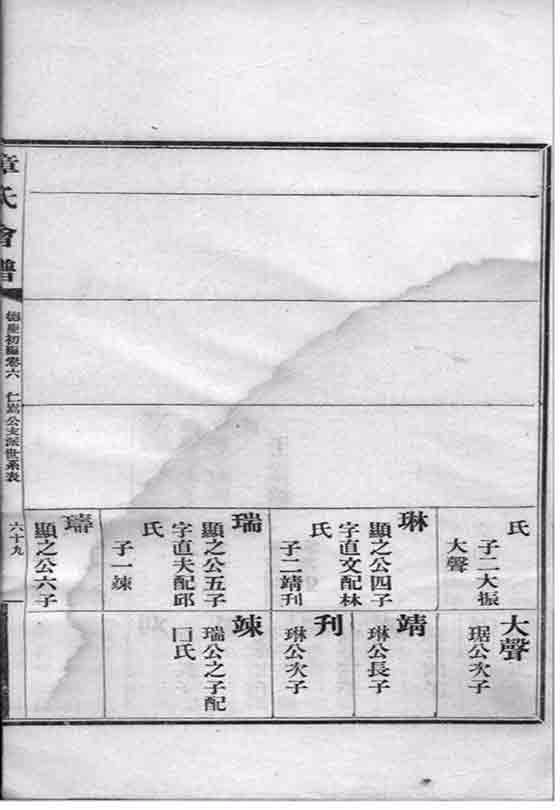 氏
子二大振
大聲
琳
顯之公四子
字直文配林
氏
子二靖刋
瑞
顯之公五子
字直夫配邱
氏
子一竦
璹
顯之公六子
大聲
琚公次子
靖
琳公長子
刋
琳公次子
竦
瑞公之子配
囗氏
章氏會譜
德慶初編卷六
仁嵩公支派世系表
六十九